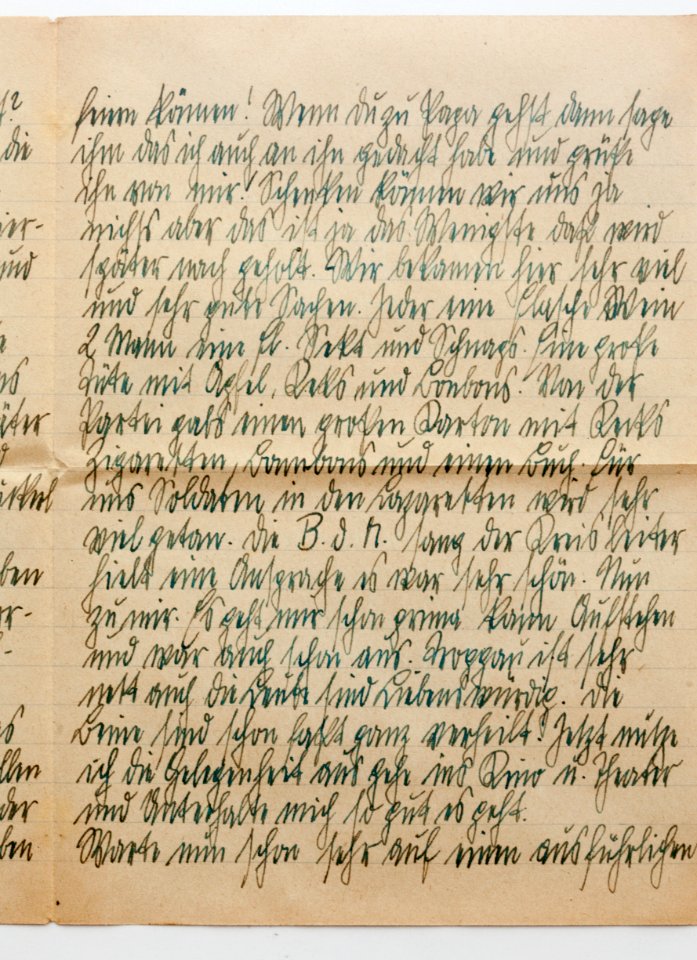 t?
die
ier-
und
e
ns
äter
d
ben
er-
as
llen
der
ben
feiern können! Wenn du zu Papa gehst dann sage
ihm das ich auch an ihn gedacht habe und grüße
ihn von mir! Schenken können wir uns ja
nichts aber das ist ja das Wenigste daß wird
später nach geholt. Wir bekamen hier sehr viel
und sehr gute Sachen. Jeder eine Flasche Wein
2 Mann eine Fl. Sekt und Schnaps. Eine große
Tüte mit Äpfel, Keks und Bonbons. Von der
Partei gabs einen großen Karton mit Keks
Zigaretten, Bonbons und einen Buch. Für
uns Soldaten in den Lazaretten wird sehr
viel getan. Die B.d.M. sang der Kreisleiter
hielt eine Ansprache es war sehr schön. Nun
zu mir. Es geht mir schon prima kann Aufstehen
und war auch schon aus. Troppau ist sehr
nett auch die Leute sind Liebenswürdig. Die
Beine sind schon fast ganz verheilt. Jetzt nutze
ich die Gelegenheit aus gehe ins Kino u. Theater
und Unterhalte mich so gut es geht.
Warte nun schon sehr auf einen ausführlichen